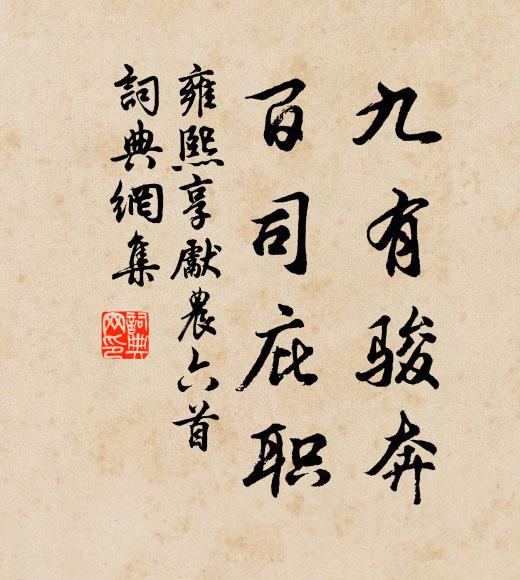 九有骏奔
百司庇职
雍熙享獻農六首
詞典網集
詞典
网印